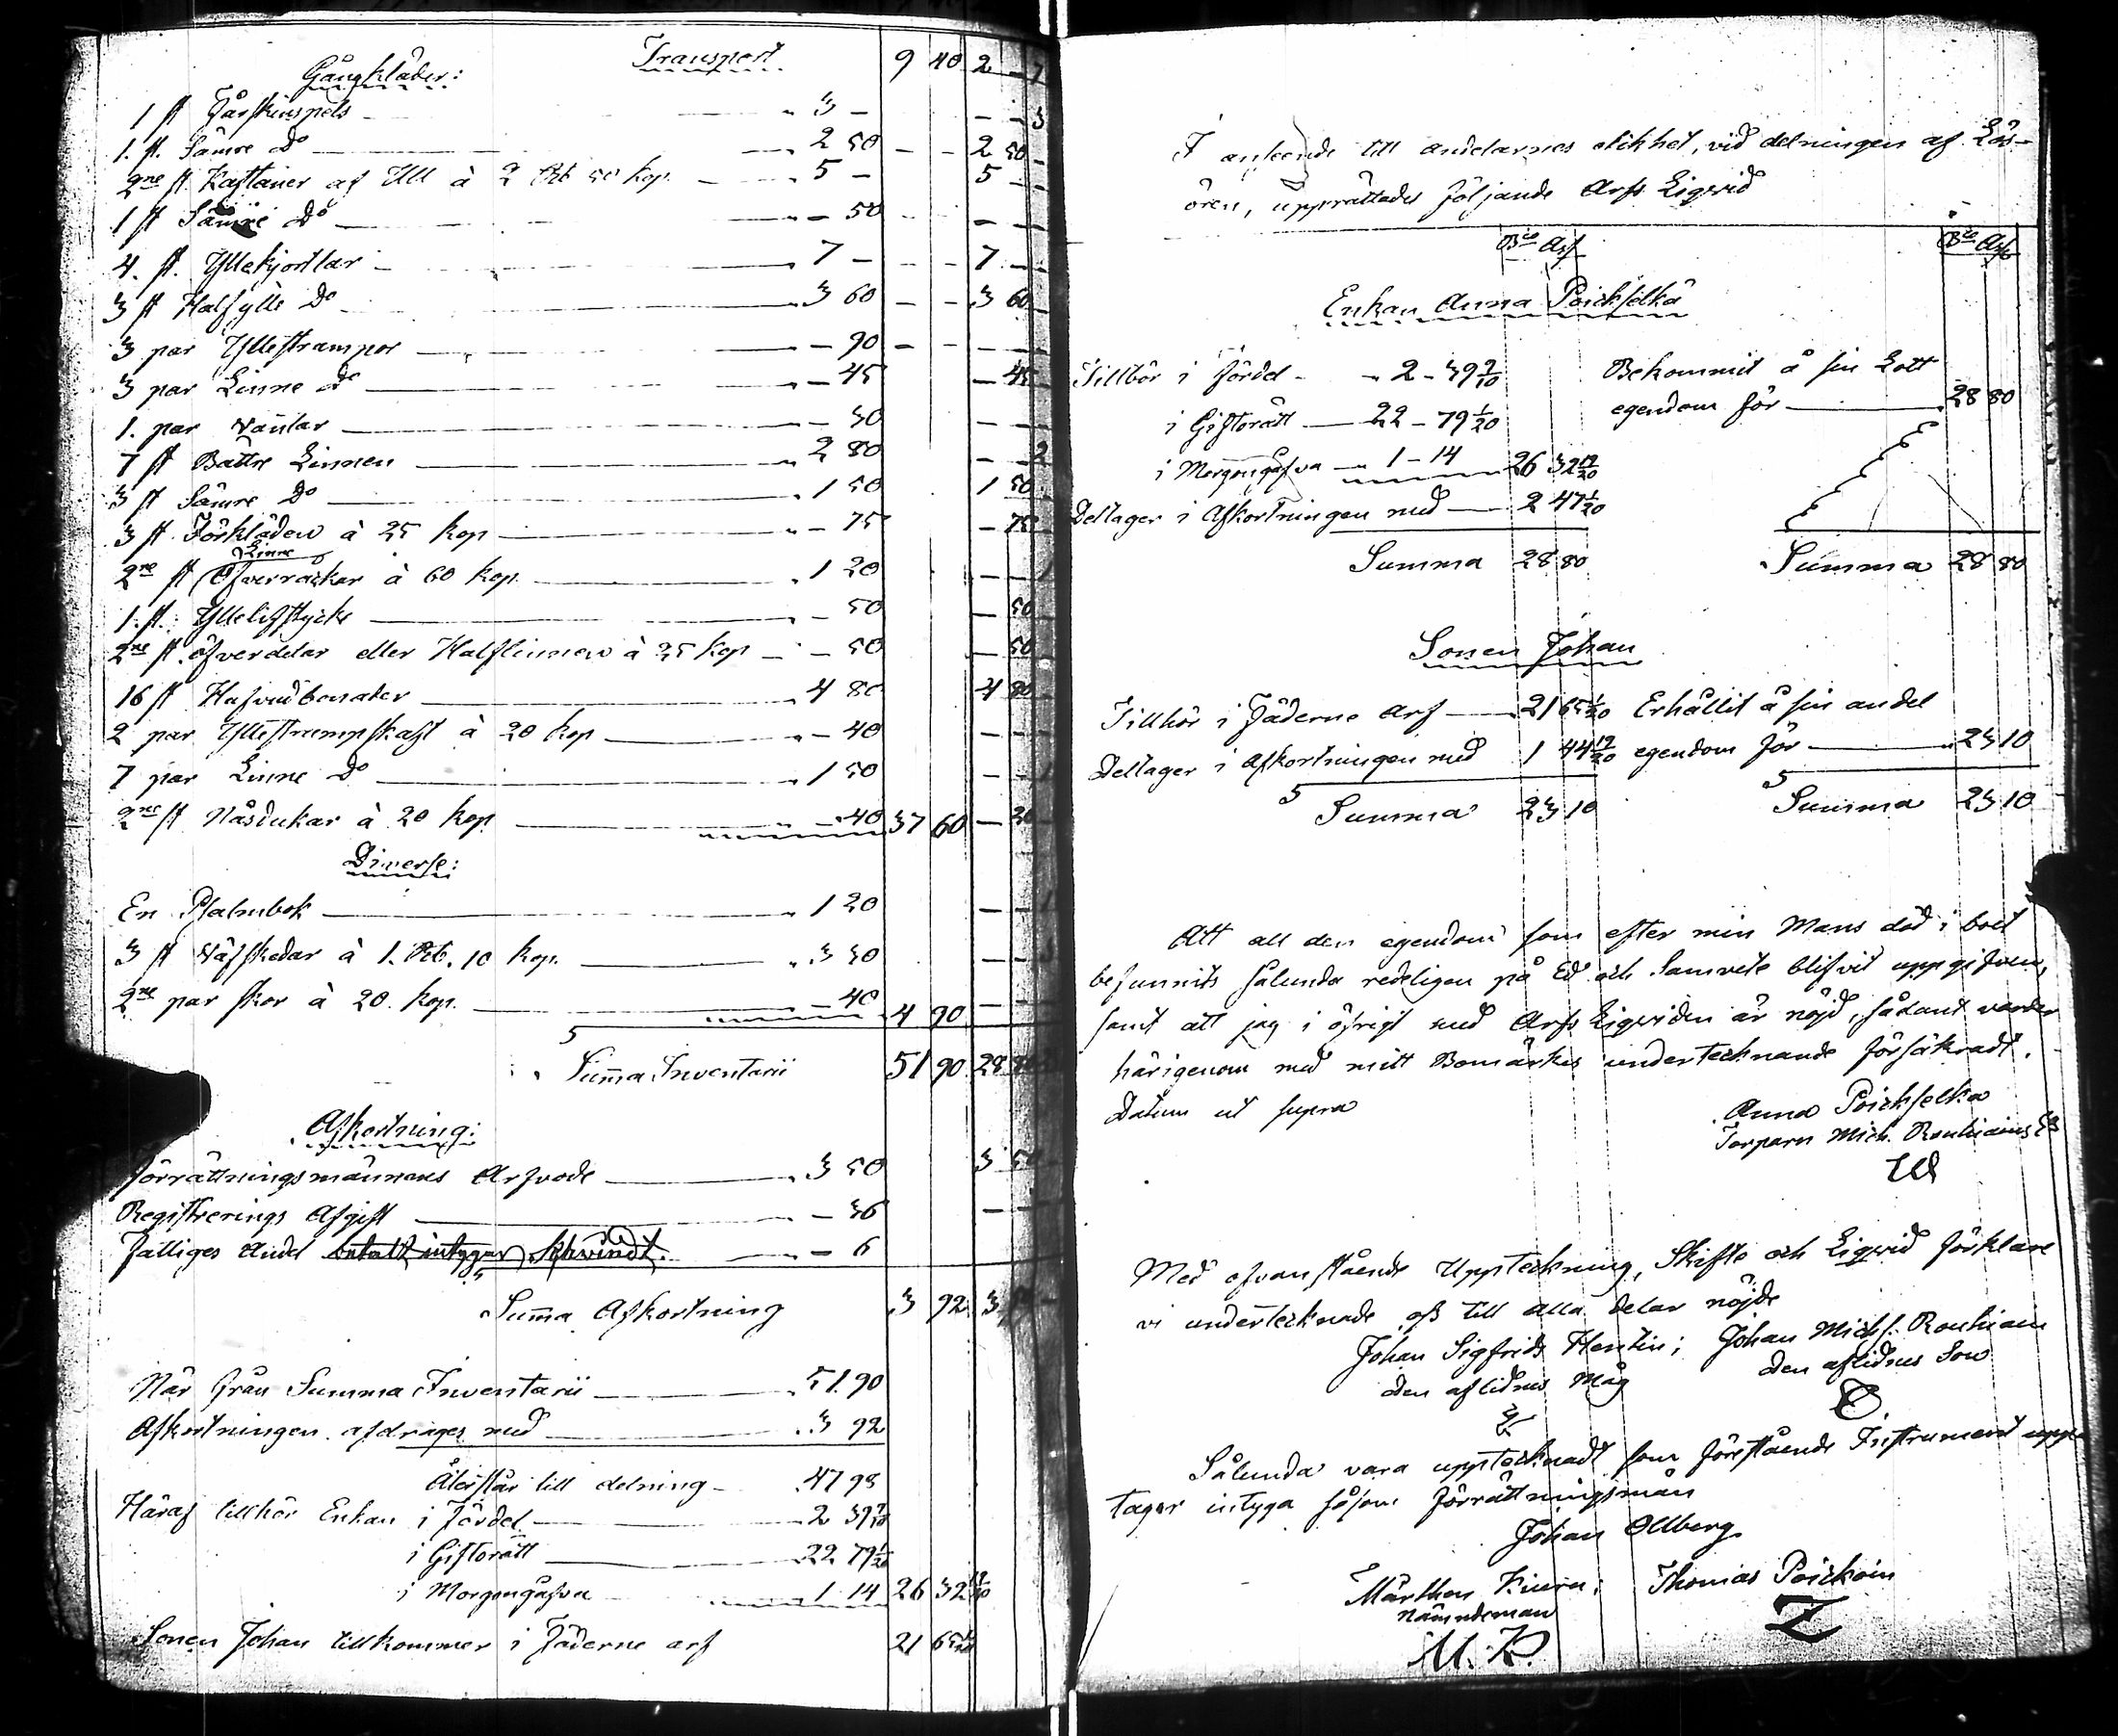 Transport 9 40 2 - 7
Gångkläder:
1 st Fårskinspels - - 3 - - - 3
1. st. Sämre do - - 2 50 - - 2 50 -
2ne st. Kaftaner af Ull à 2 Rb 50 Kop. - - 5 - 5 -
1 st Sämre do - - 50 - -
4. st. Yllekjortlar - 7 - - - 7 - -
3 st Halfylle do - 3 60 - - 3 60
3 par Yllestrumpor - - 90 - - - -
3 par Linne do - - 45 - 45
1. par Vantar - - 30 - -
7 st Bättre Linnen - 2 80 - - 2
3 st Sämre do - 1 50 1 50
3 st Förkläden à 25 Kop - - 75 - 75
Linne
2ne st Öfverråckar à 60 Kop. - 1 20 - - 1
1. st. Yllelifstycke - - 50 - 50
2ne st. öfverdelar eller Halflinnen à 25 Kop - - 50 - 50
16 st Hufvudbonader - 4 80 4 80
2 par Yllestrumpskaft à 20 Kop - - 40 - -
7 par Linne do - 1 50 - - 1
2ne st Näsdukar à 20 Kop. - - 40 37 60 - 20
Diverse:
En Psalmbok - 1 20 - - 1
3 st Väfskedar à 1. Rb. 10 Kop. - 3 30 - - 3
2ne par skor à 20. Kop. - - 40 4 90 - -
Summa Inventarii 51 90 28 80
Afkortning:
Förrättningsmännens Arfvode - 3 50 3 50
Registrerings Afgift - - 36 - -
Fattiges Andel betalt intygar - - 6
Summa Afkortning 3 92 3
När från Summa Inventarii - 51. 90
Afkortningen afdrages med - 3 92
Återstår till delning - 47 98
Häraf tillhör Enkan i Fördel - 2 39 9/10
i Giftorätt - 22 79 1/20
i Morgongåfva - 1 14 26 32 19/20
Sonen Johan tillkommer i Fäderne arf 21 65 1/20
I anseende till andelarnes olikhet, vid delningen af Lös-
ören, upprättades följande Arfs Liqvid
Bco Arf Bco Arf
Enkan Anna Poickselkä
Tillhör i Fördel - 2 - 39 9/10 Bekommit å sin Lott
i Giftorätt - 22 - 79 1/20 egendom för - 28 80
i Morgongåfva - 1 - 14 26 32 19/20
Deltager i Afkortningen med - 2 47 1/20
Summa 28 80 Summa 28 80
Sonen Johan
Tillhör i Fäderne Arf - 21 65 1/20 Erhållit å sin andel
Deltager i Afkortningen med 1 44 19/20 egendom för - 23 10
Summa 23 10 Summa 23 10
Att all den egendom som efter min Mans död i boet
befunnits sålunda redeligen på Ed och Samvete blifvit uppgifven,
samt att jag i öfrigt med Arfs Liqviden är nöjd, sådant varder
härigenom med mitt Bomärkes undertecknande försäkradt.
Datum ut supra
Anna Poickselkä
Torparn Mich. Rouhiains
Med ofvanstående Uppteckning, Skifte och Liqvid förklare
vi undertecknade oss till alla delar nöjde
Johan Sigfrids Hentin; Johan Michs. Rouhiain
den aflidnes Måg den aflidnes Son
Sålunda vara upptecknadt som förestående Instrument upp-
tager intyga såsom förrättningsmän
Johan Ollberg
Mårthen Kiuru; Thomas Poickoin
Nämndeman
M. K. Z